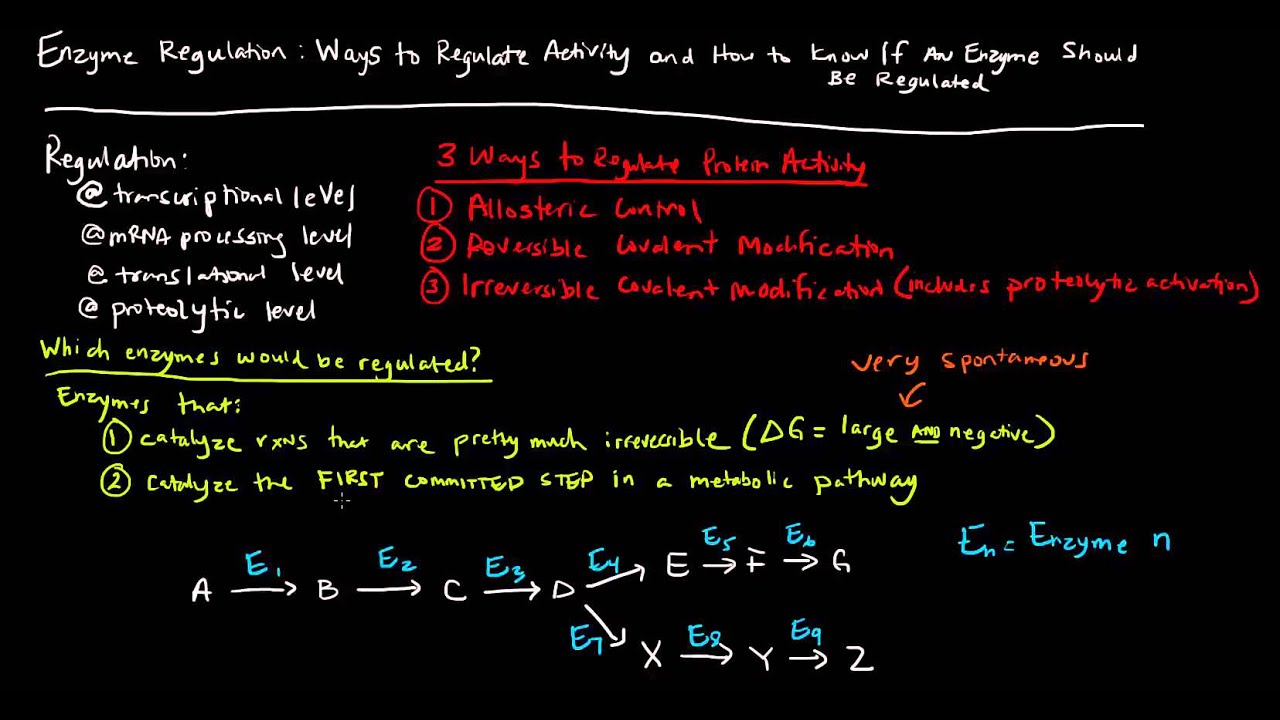 Enzyme Regulation: Ways to Regulate Activity and How to Know If An Enzyme Should
Be Regulated
Regulation:
@ transcriptional level
@ mRNA processing level
@ translational level
@ proteolytic level
3 Ways to Regulate Protein Activity
1 Allosteric Control
2 Reversible Covalent Modification
3 Irreversible Covalent Modification (includes proteolytic activation)
Which enzymes would be regulated?
Enzymes that:
very spontaneous
1 catalyze rxns that are pretty much irreversible (ΔG = large AND negative)
2 catalyze the FIRST COMMITTED STEP in a metabolic pathway
En = Enzyme n
E1 E2 E3 E4 E5 E6
A → B → C → D → E → F → G
E7 E8 E9
X → Y → Z